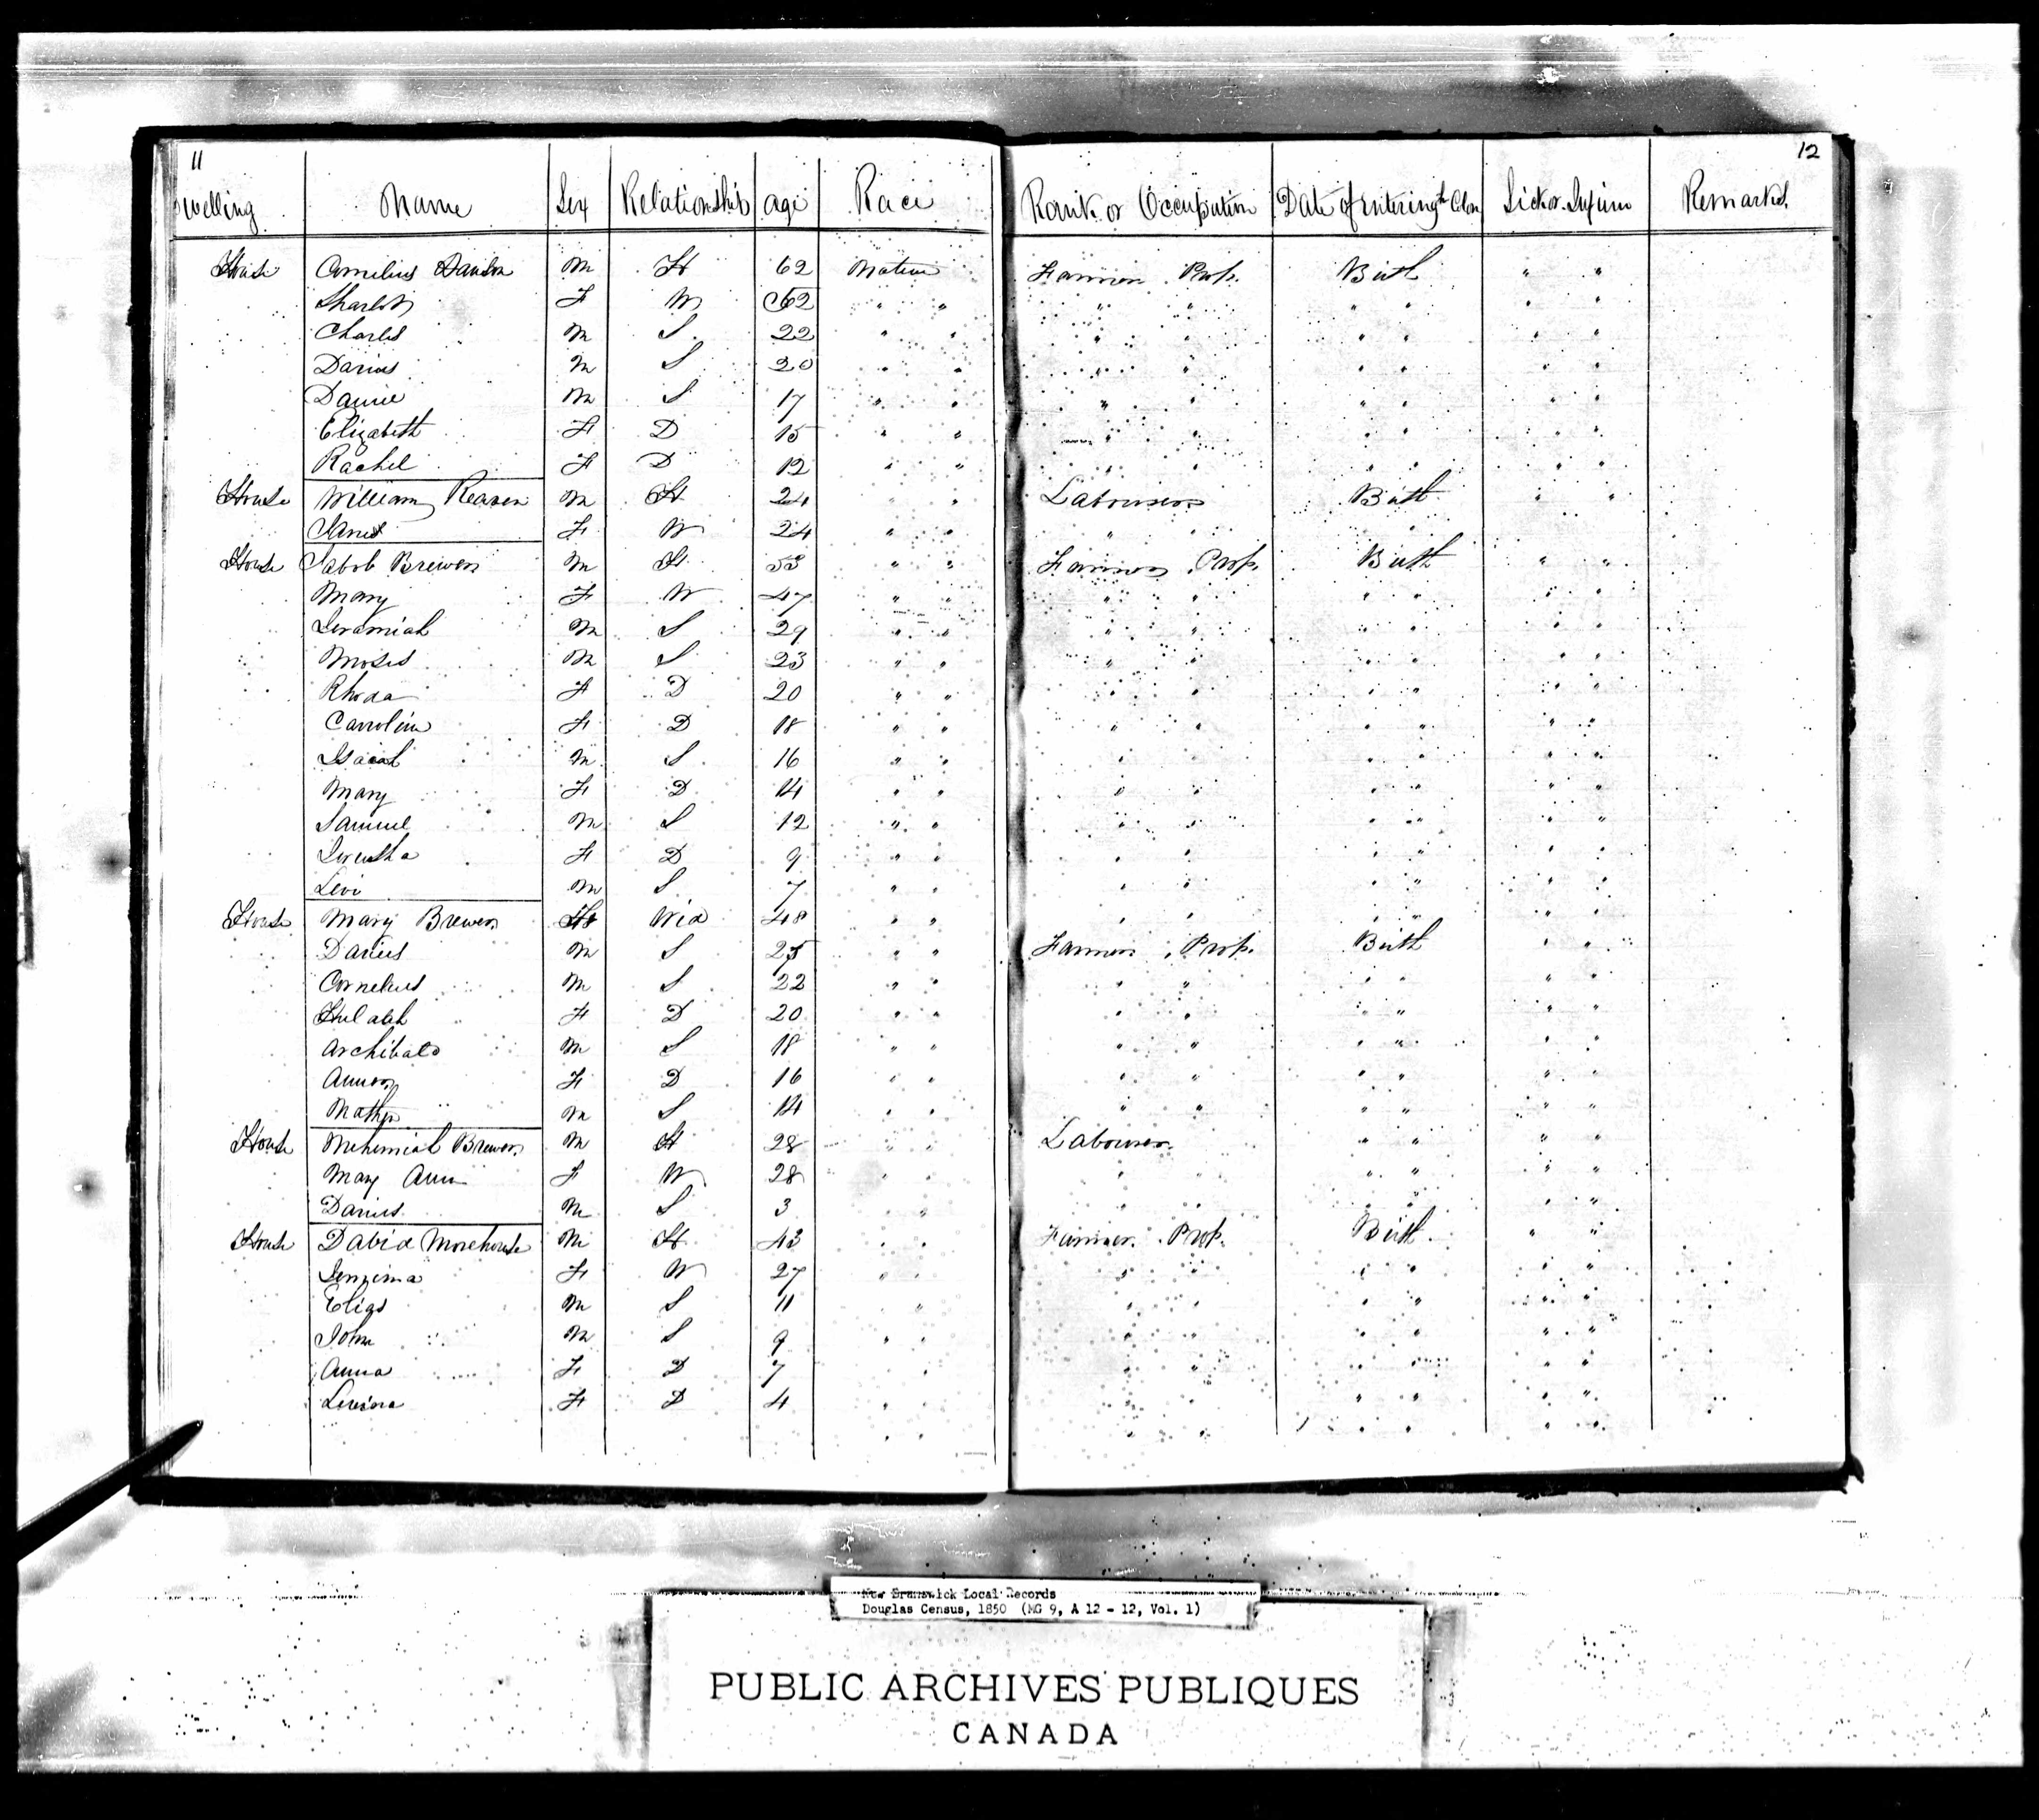 11
12
Dwelling Name Sex Relationship Age Race Rank or Occupation Date of entering Colon Sick or Infirm Remarks.
House M H 62 Native Farmer Prop. Birth " "
F W 52 " " " " " " " "
Charles M S 22 " " " " " " " "
Darius M S 20 " " " " " " " "
M S 17 " " " " " " " "
Elizabeth F D 15 " " " " " " " "
Rachel F D 12 " " " " " " " "
House William M H 24 " " Labourer Birth " "
Janet F W 24 " " " " "
House Jabob Brewer M H 53 " " Farmer Prop. Birth " "
Mary F W 47 " " " " " " " "
Jeramiah M S 29 " " " " " " " "
Moses M S 23 " " " " " " " "
Rhoda F D 20 " " " " " " " "
Carrolin F D 18 " " " " " " " "
Isaiah M S 16 " " " " " " " "
Mary F D 14 " " " " " " " "
Samuel M S 12 " " " " " " " "
F D 9 " " " " " " " "
Levi M S 7 " " " " " " " "
House Mary Brewer F Wid 48 " " " " " " " "
Darius M S 25 " " Farmer Prop. Birth " "
Cornelius M S 22 " " " " " " " "
Huldah F D 20 " " " " " " " "
Archibald M S 18 " " " " " " " "
F D 16 " " " " " " " "
M S 14 " " " " " " " "
House Nehemiah Brewer M H 28 " " Labourer " " " "
Mary Ann F W 28 " " " " " " " "
Darius M S 3 " " " " " " "
House David Morehouse M H 43 " " Farmer Prop. Birth " "
F W 27 " " " " " " " "
Elias M S 11 " " " " " " "
John M S 9 " " " " " " " "
Anna F D 7 " " " " " "
F D 4 " " " " " "
New Brunswick Local Records
Douglas Census, 1850 (MG 9, A 12 - 12, Vol. 1)
PUBLIC ARCHIVES PUBLIQUES
CANADA